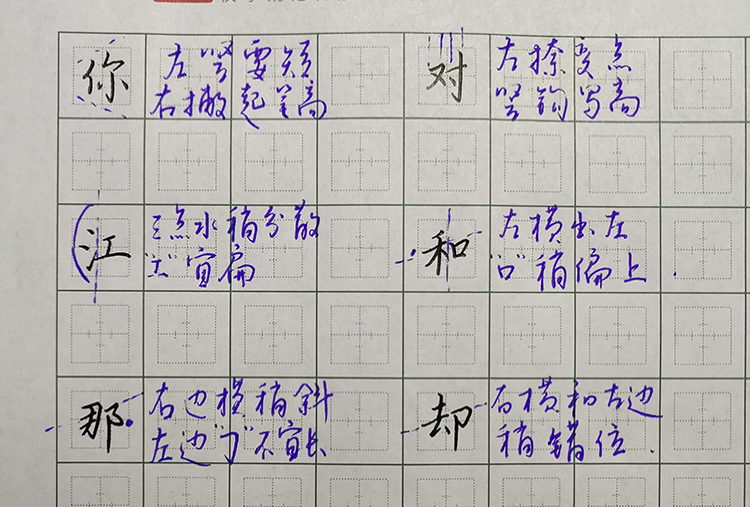 你
左竖要短
右撇起笔高
对
左捺变点
竖钩写高
江
三点水稍分散
"工"宜扁
和
左横出左
"口"稍偏上.
那
右边横稍斜
左边"㇆"不宜长
却
右横和左边
稍错位.